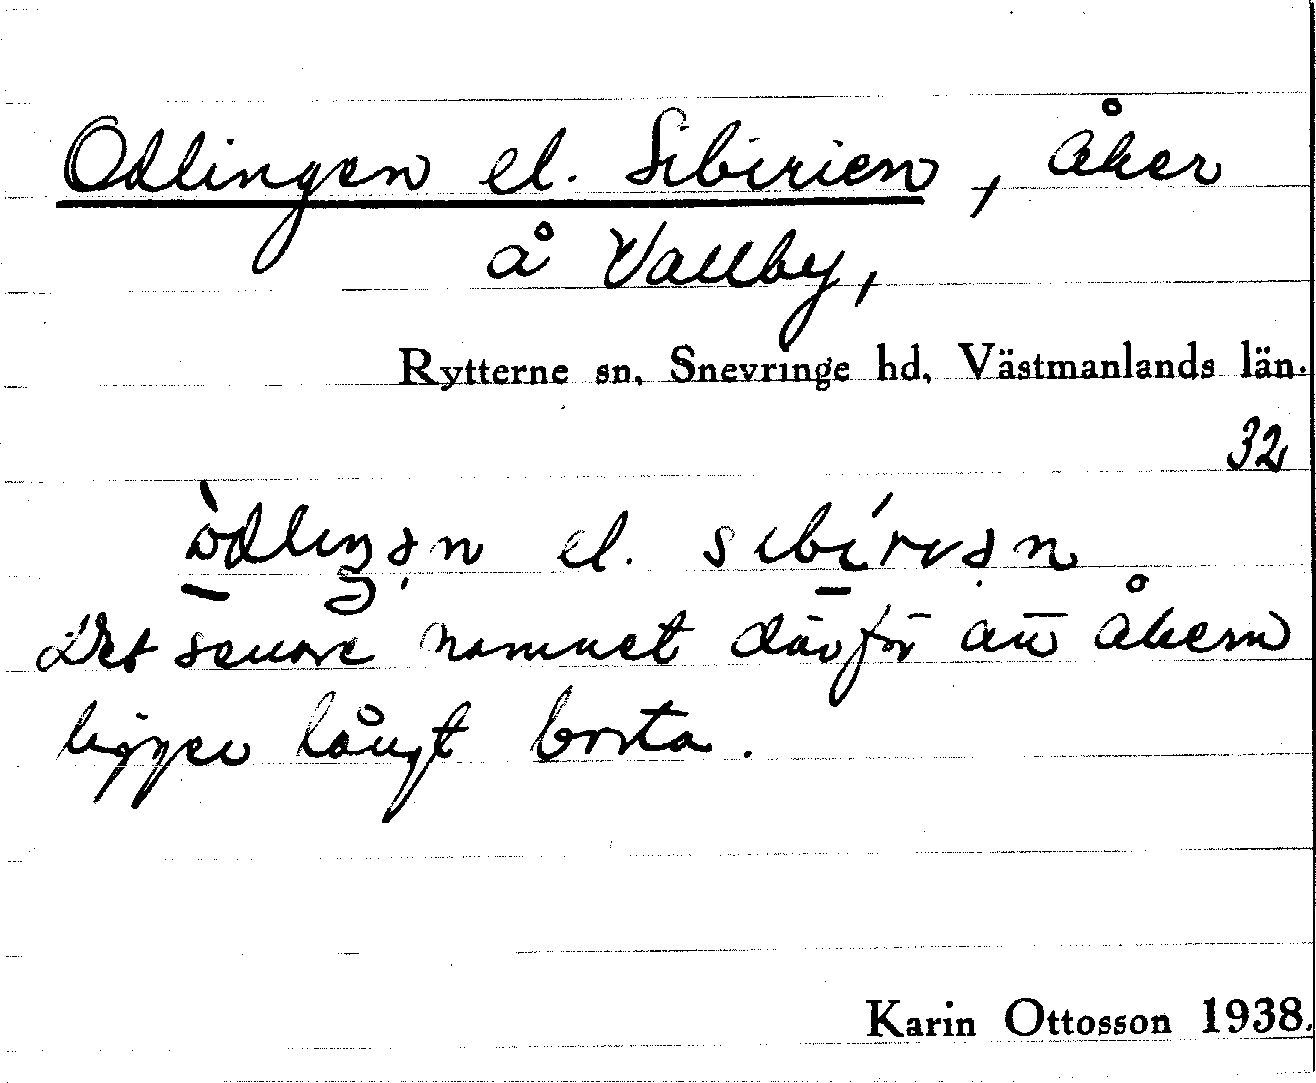 Odlingen el. Sibirien, åker
å Vallby,
Rytterne sn, Snevringe hd, Västmanlands län.
32
òdliŋən el. sibírıən
Det senare namnet därför att åkern
ligger långt borta.
Karin Ottosson 1938.